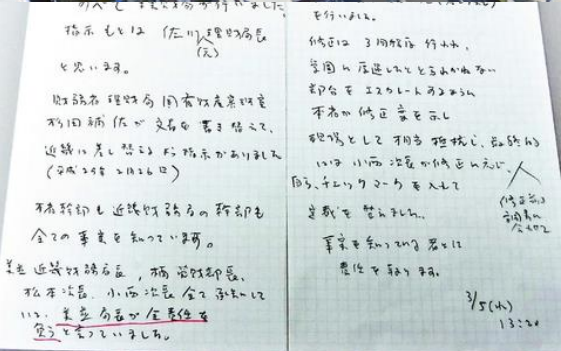 指示もとは 佐川理財局長
(元)
と思います。
財務省理財局国有財産審理室
杉田補佐が文書を書き替えて、
近畿に差し替えるよう指示がありました
(平成29年 2月26日)
本省幹部も近畿財務局の幹部も
全ての事実を知っています。
美並近畿財務局長、楠 管財部長、
松本次長、小西次長全て承知して
いる。美並局長が全責任を
負うと言っていました。
を行いました。
修正は 3回程度 行われ、
本省が修正案を示し
現場として相当抵抗し、最終的
には小西次長が修正に応じ、
自ら、チェックマークを入れて
定裁を整えました。
事実を知っている者として
責任を取ります。
3/5(水)
13:20